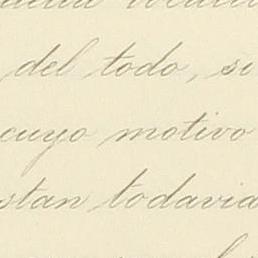 del todo, si
cuyo motivo
stan todavia